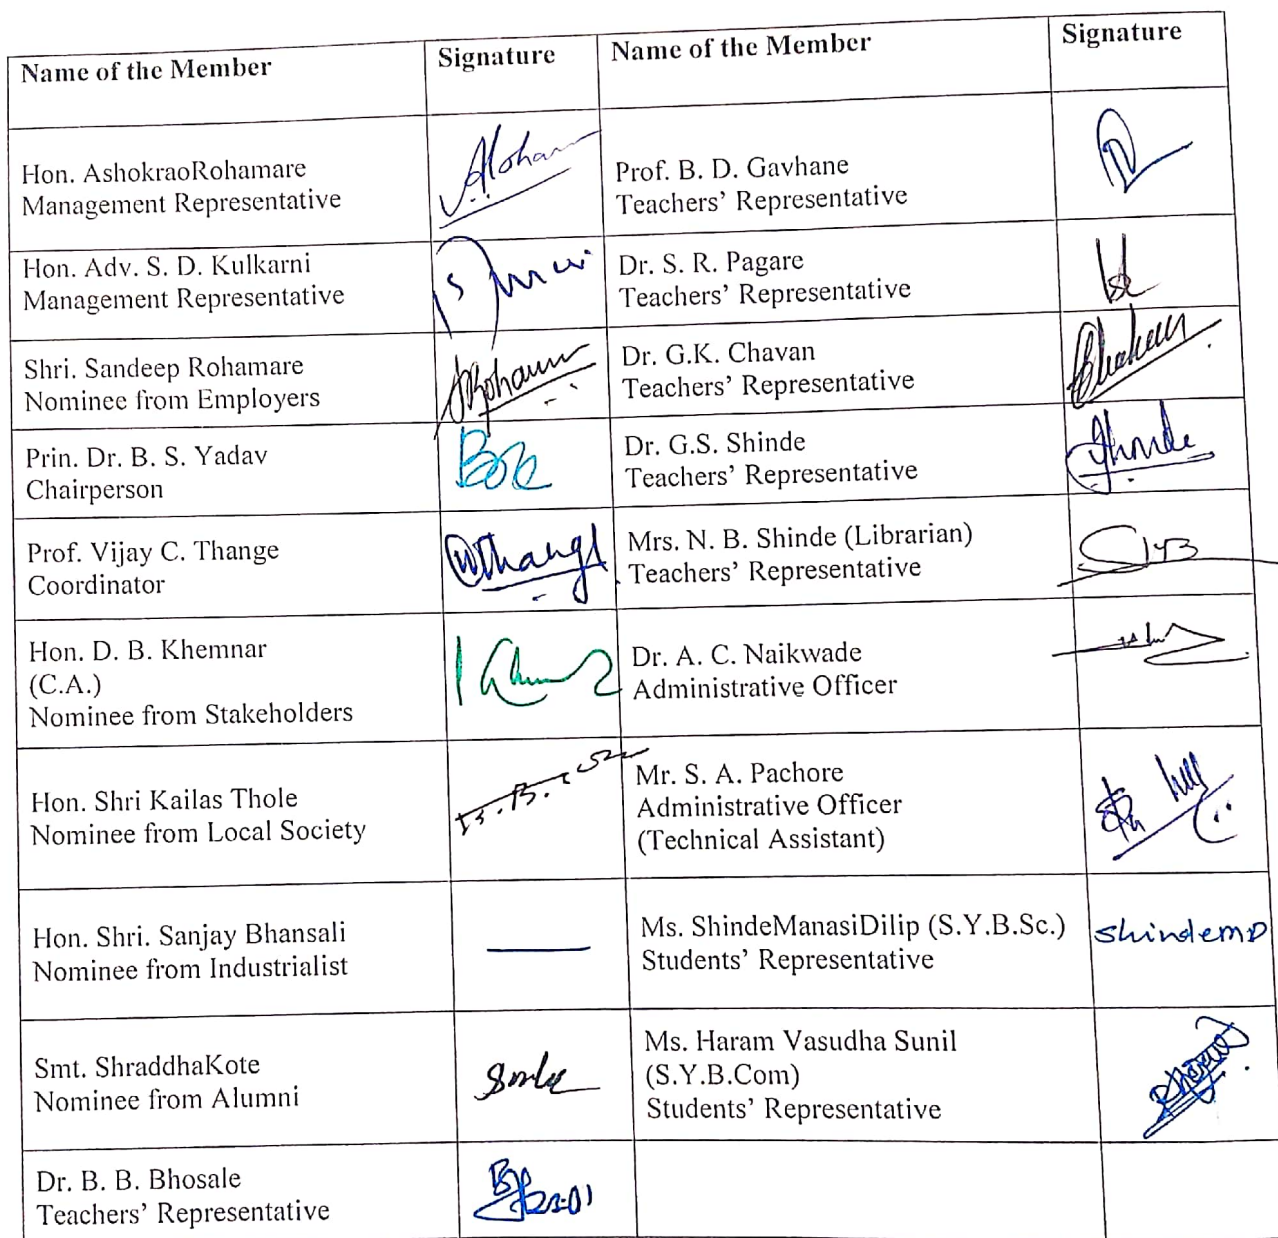 Name of the Member
Signature
Name of the Member
Signature
Hon. AshokraoRohamare
Management Representative
Prof. B. D. Gavhane
Teachers' Representative
Hon. Adv. S. D. Kulkarni
Management Representative
Dr. S. R. Pagare
Teachers' Representative
Shri. Sandeep Rohamare
Nominee from Employers
Dr. G.K. Chavan
Teachers' Representative
Prin. Dr. B. S. Yadav
Chairperson
Dr. G.S. Shinde
Teachers' Representative
Shinde
Prof. Vijay C. Thange
Coordinator
Mrs. N. B. Shinde (Librarian)
Teachers' Representative
Hon. D. B. Khemnar
(C.A.)
Nominee from Stakeholders
Dr. A. C. Naikwade
Administrative Officer
Hon. Shri Kailas Thole
Nominee from Local Society
Mr. S. A. Pachore
Administrative Officer
(Technical Assistant)
Hon. Shri. Sanjay Bhansali
Nominee from Industrialist
Ms. ShindeManasiDilip (S.Y.B.Sc.)
Students' Representative
ShindeMD
Smt. ShraddhaKote
Nominee from Alumni
Ms. Haram Vasudha Sunil
(S.Y.B.Com)
Students' Representative
Dr. B. B. Bhosale
Teachers' Representative